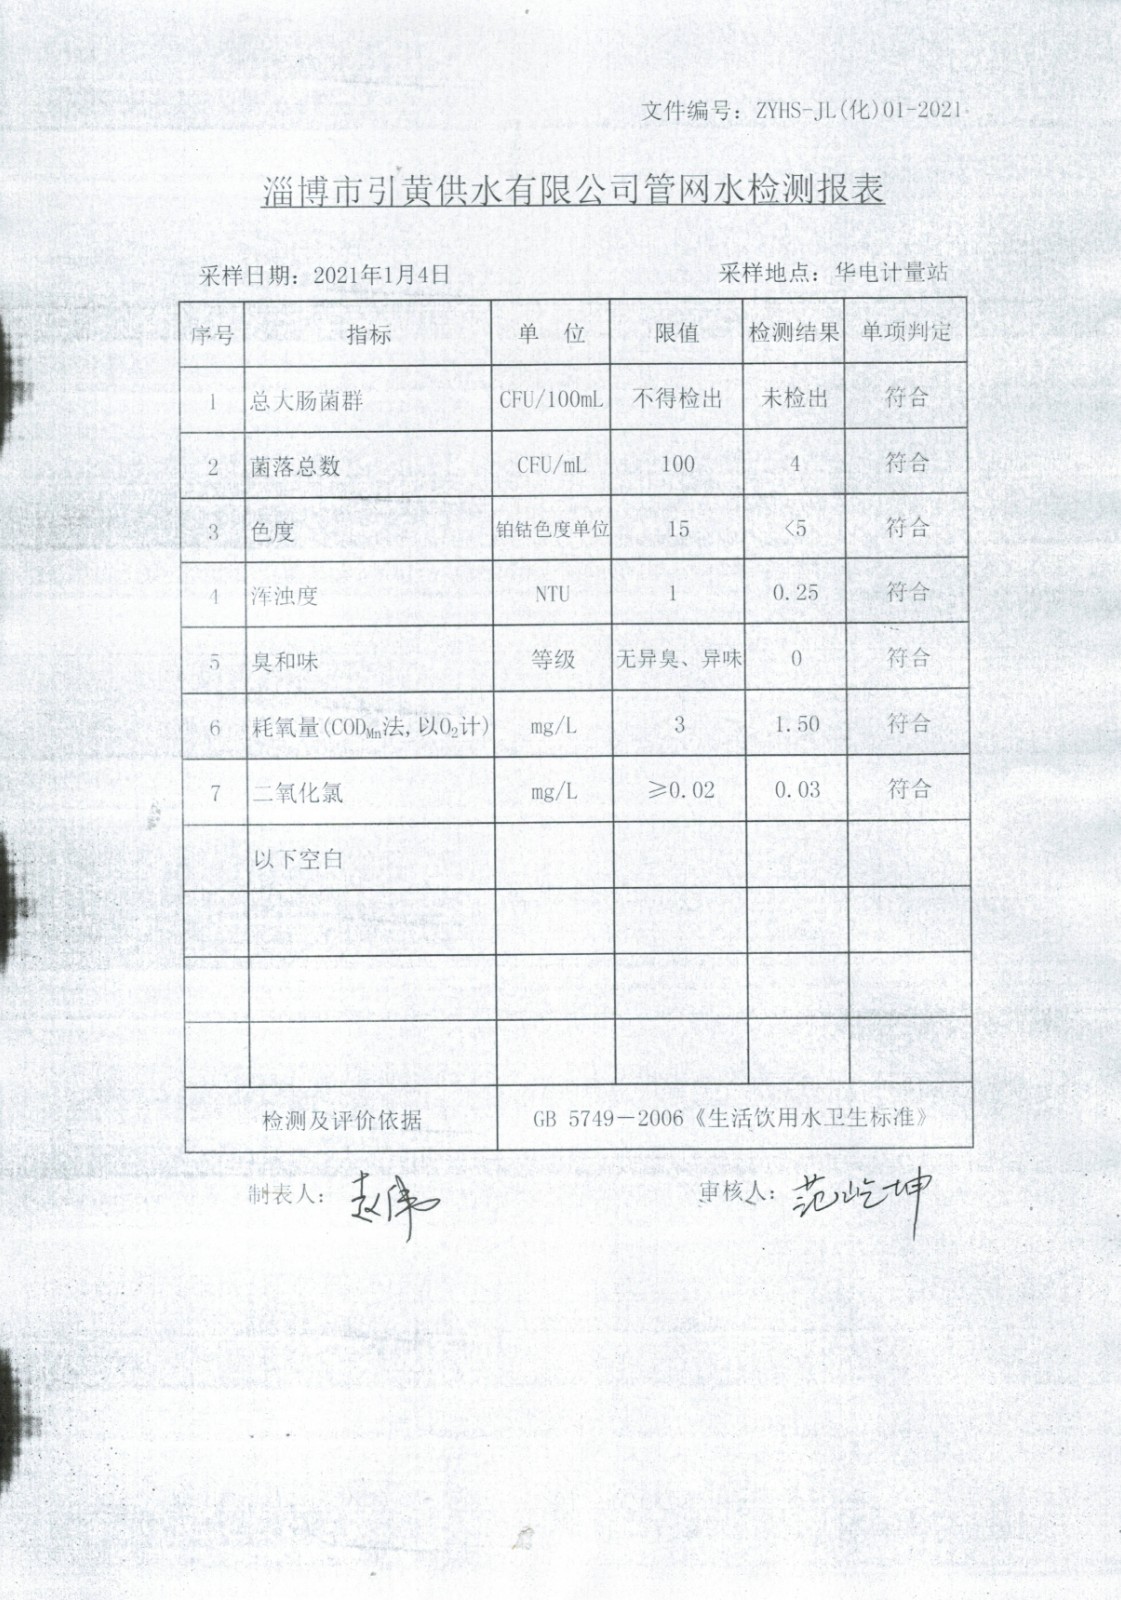 文件编号：ZYHS-JL(化)01-2021
淄博市引黄供水有限公司管网水检测报表
采样日期：2021年1月4日 采样地点：华电计量站
序号 指标 单 位 限值 检测结果 单项判定
1 总大肠菌群 CFU/100mL 不得检出 未检出 符合
2 菌落总数 CFU/mL 100 4 符合
3 色度 铂钴色度单位 15 <5 符合
4 浑浊度 NTU 1 0.25 符合
5 臭和味 等级 无异臭、异味 0 符合
6 耗氧量(CODMn法,以O2计) mg/L 3 1.50 符合
7 二氧化氯 mg/L ≥0.02 0.03 符合
以下空白
检测及评价依据 GB 5749－2006《生活饮用水卫生标准》
制表人：赵伟 审核人：范屹坤